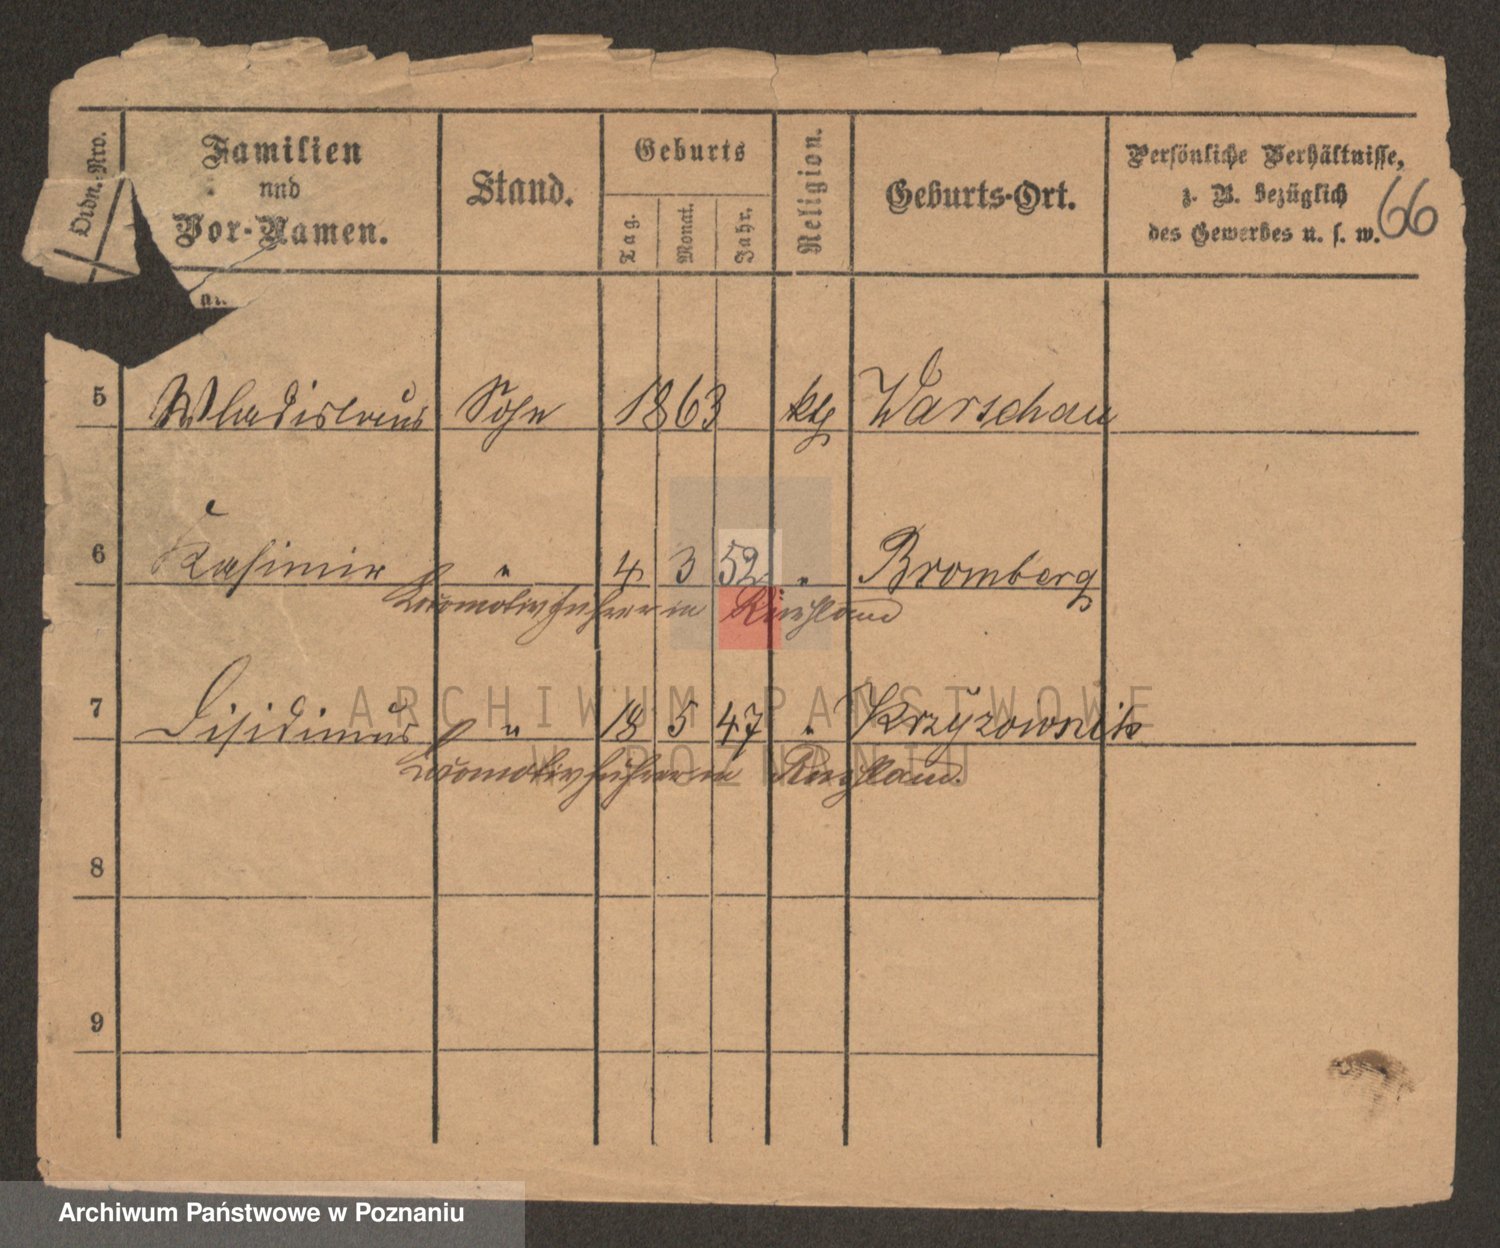 Ordn.-Nro.
Familien
und
Vor-Namen.
Stand.
Geburts
Tag.
Monat.
Jahr.
Religion.
Geburts-Ort.
Persönliche Verhältnisse,
z. B. bezüglich
des Gewerbes u. s. w.
66
5 Wladislaus Sohn 1863 kth Warschau
6 Kasimir " 4 3 52 " Bromberg
Locomotivführer in Russland
7 " 18 5 47 " Krzyzownik
Locomotivführer in Russland.
8
9
ARCHIWUM PAŃSTWOWE
W POZNANIU
Archiwum Państwowe w Poznaniu